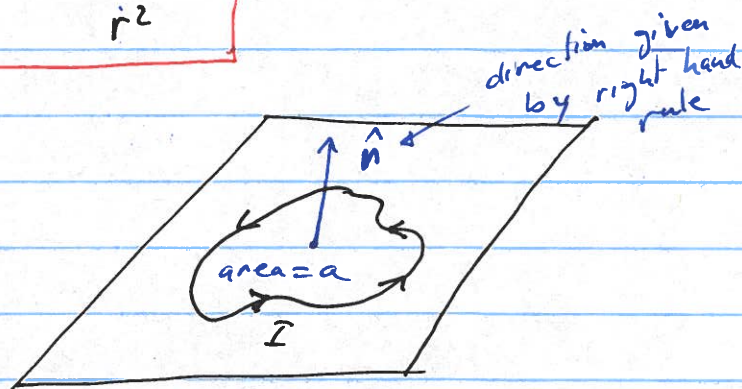 r²
direction given
by right hand
rule
n̂
area = a
I